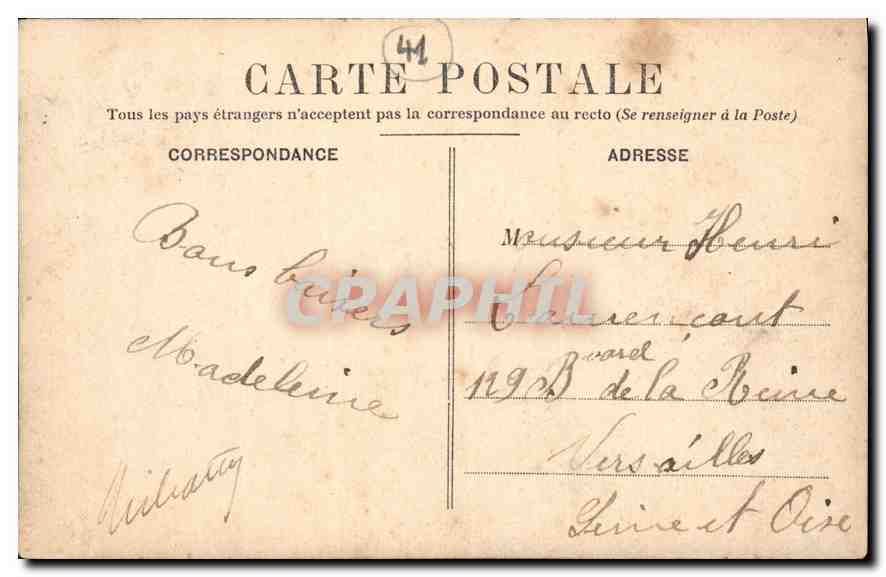 41
CARTE POSTALE
Tous les pays étrangers n'acceptent pas la correspondance au recto (Se renseigner à la Poste)
CORRESPONDANCE
Bons baisers
Madeleine
ADRESSE
Monsieur Henri
129 Bvard de la Reine
Versailles
Seine et Oise
CRAPHIL